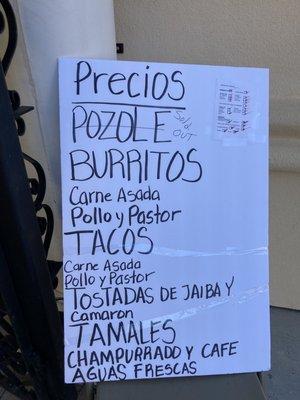 Precios
POZOLE Sold OUT
BURRITOS
Carne Asada
Pollo y Pastor
TACOS
Carne Asada
Pollo y Pastor
TOSTADAS DE JAIBA Y
camaron
TAMALES
CHAMPURRADO Y CAFE
AGUAS FRESCAS